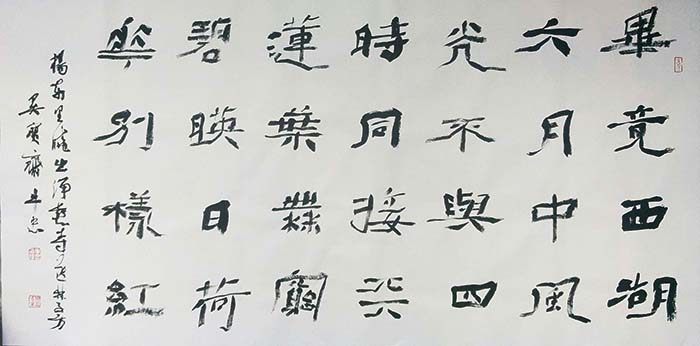 畢竟西湖
六月中風
光不與四
時同接天
蓮葉無窮
碧暎日荷
華別樣紅
楊萬里曉出淨慈寺送林子方